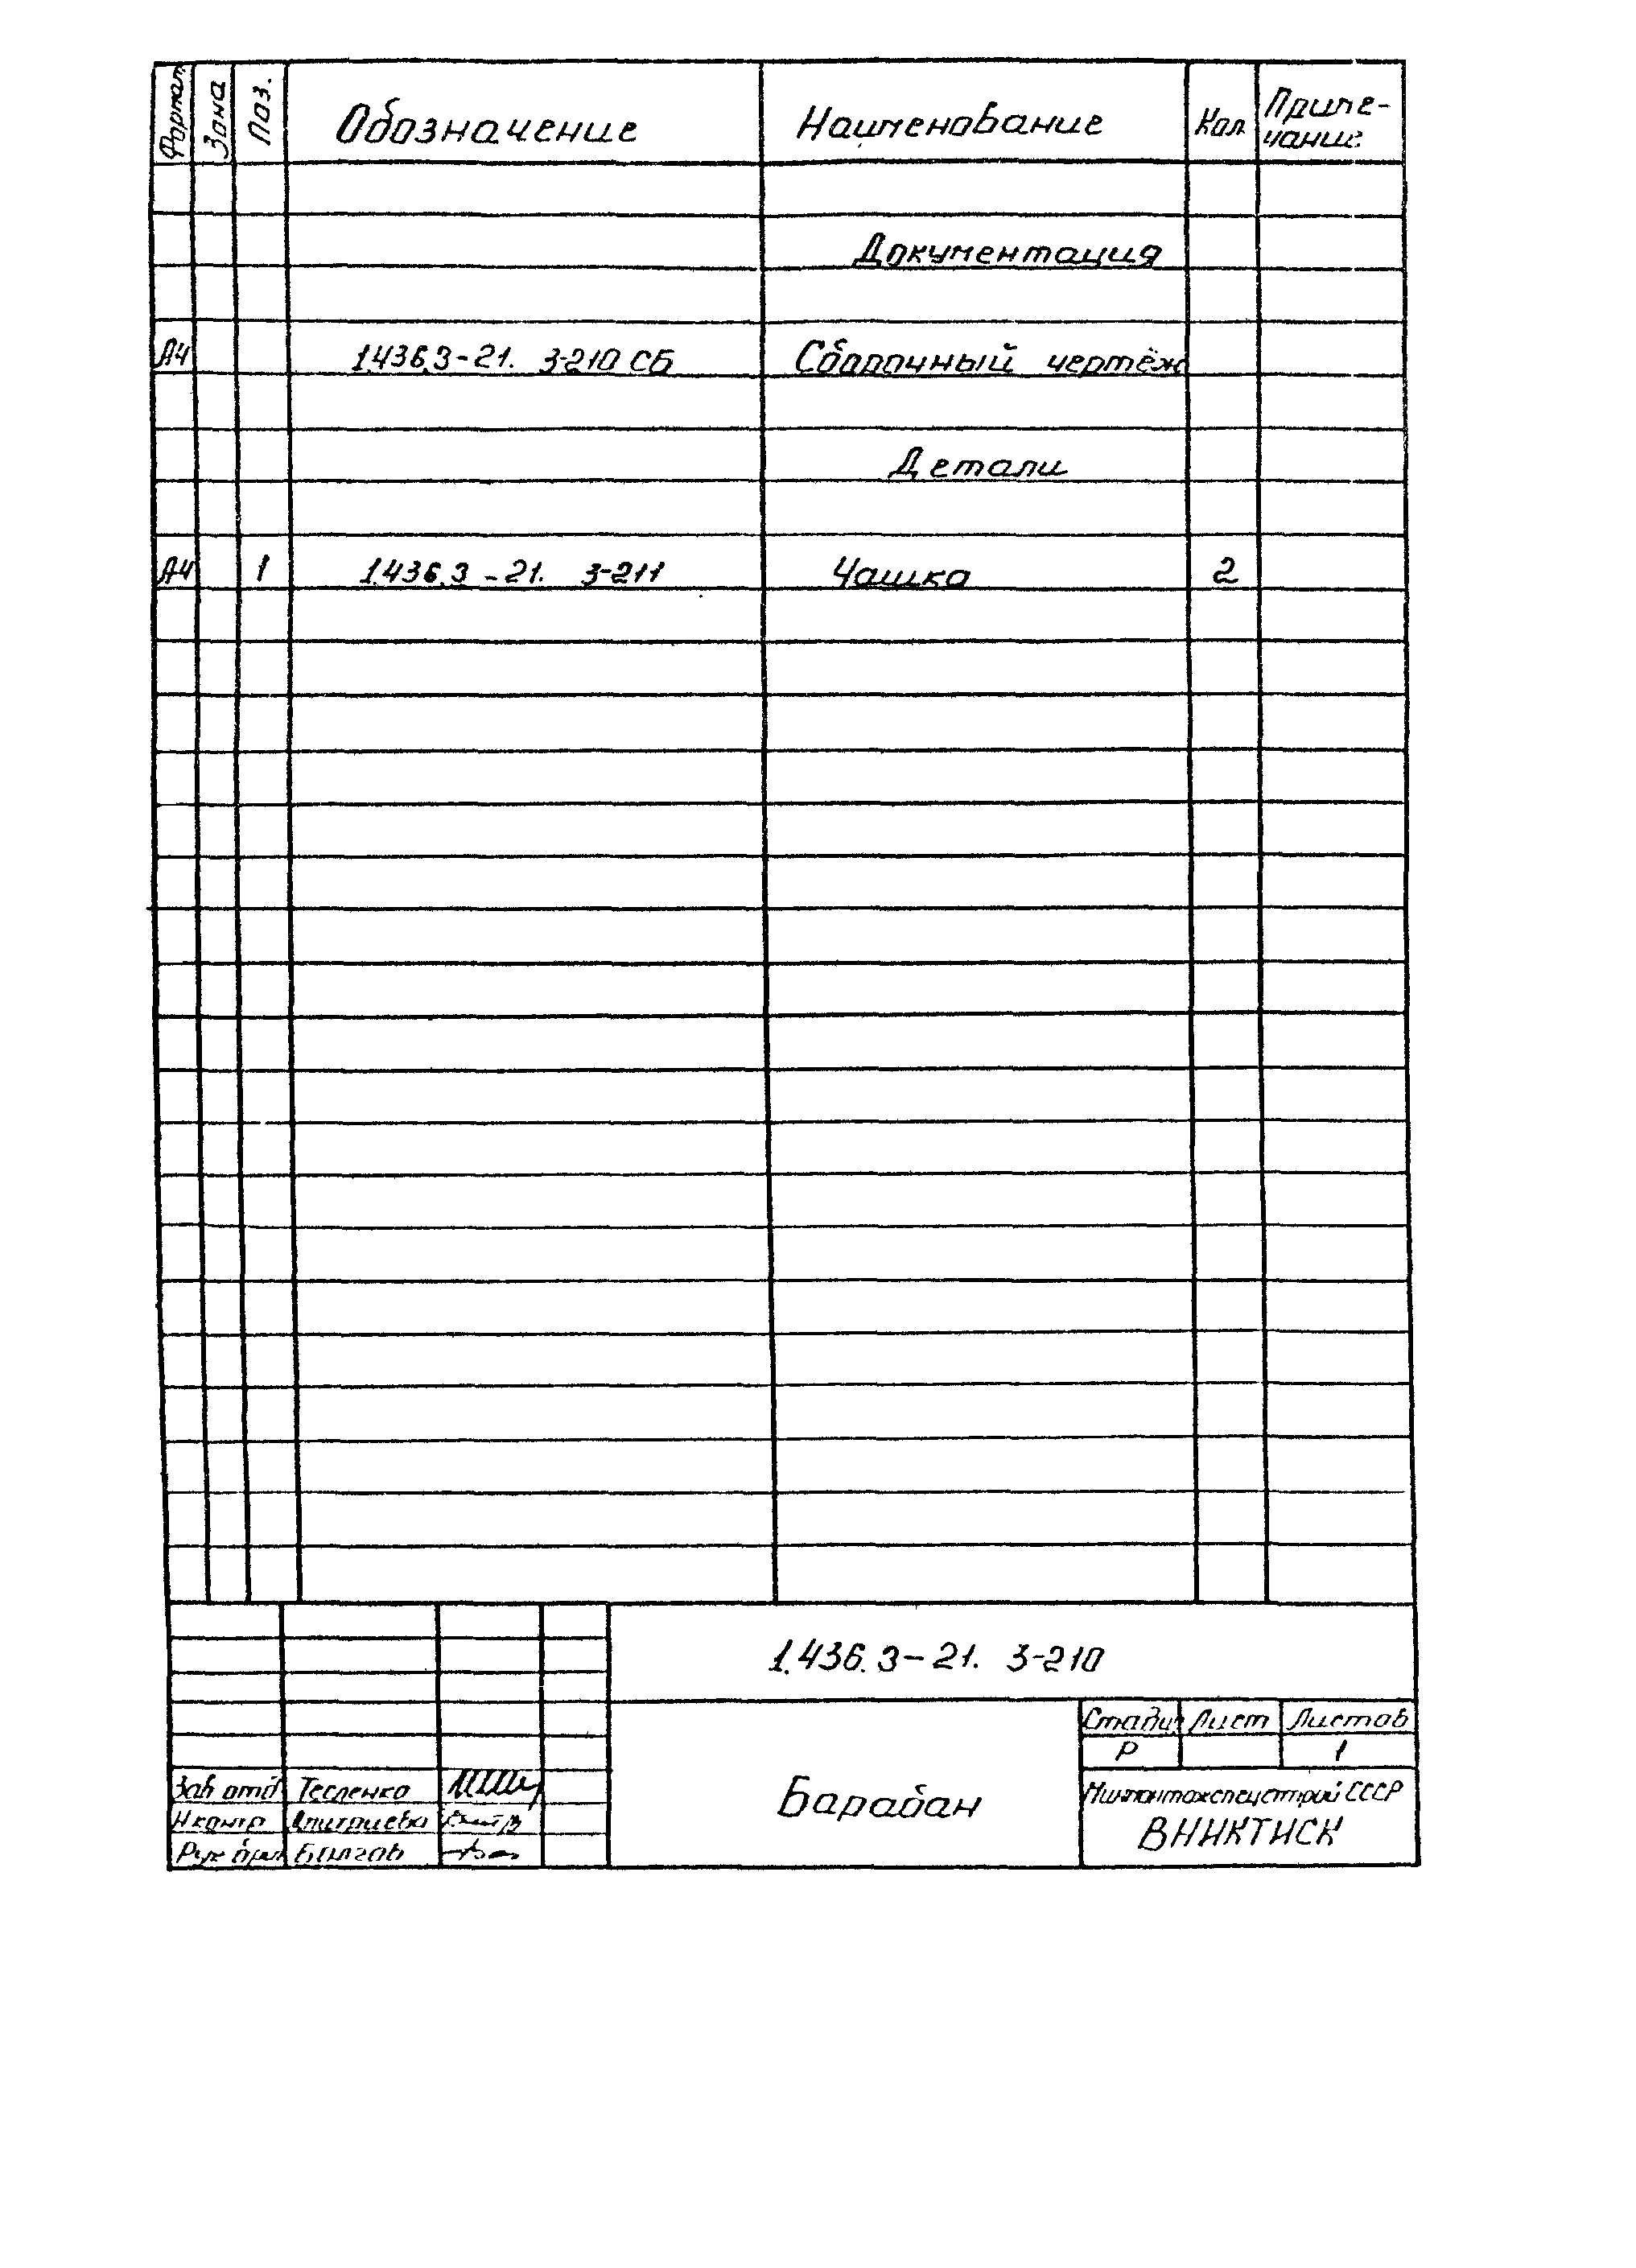 Формат Зона Поз. Обозначение Наименование Кол. Приме-
чание
Документация
А4 1.436.3-21. 3-210 СБ Сборочный чертёж
Детали
А4 1 1.436.3-21. 3-211 Чашка 2
1.436.3-21. 3-210
Стадия Лист Листов
Р 1
Барабан
Зав отд Тесленко
Н контр Дмитриева
Рук бриг
Минмонтажспецстрой СССР
ВНИКТИСК